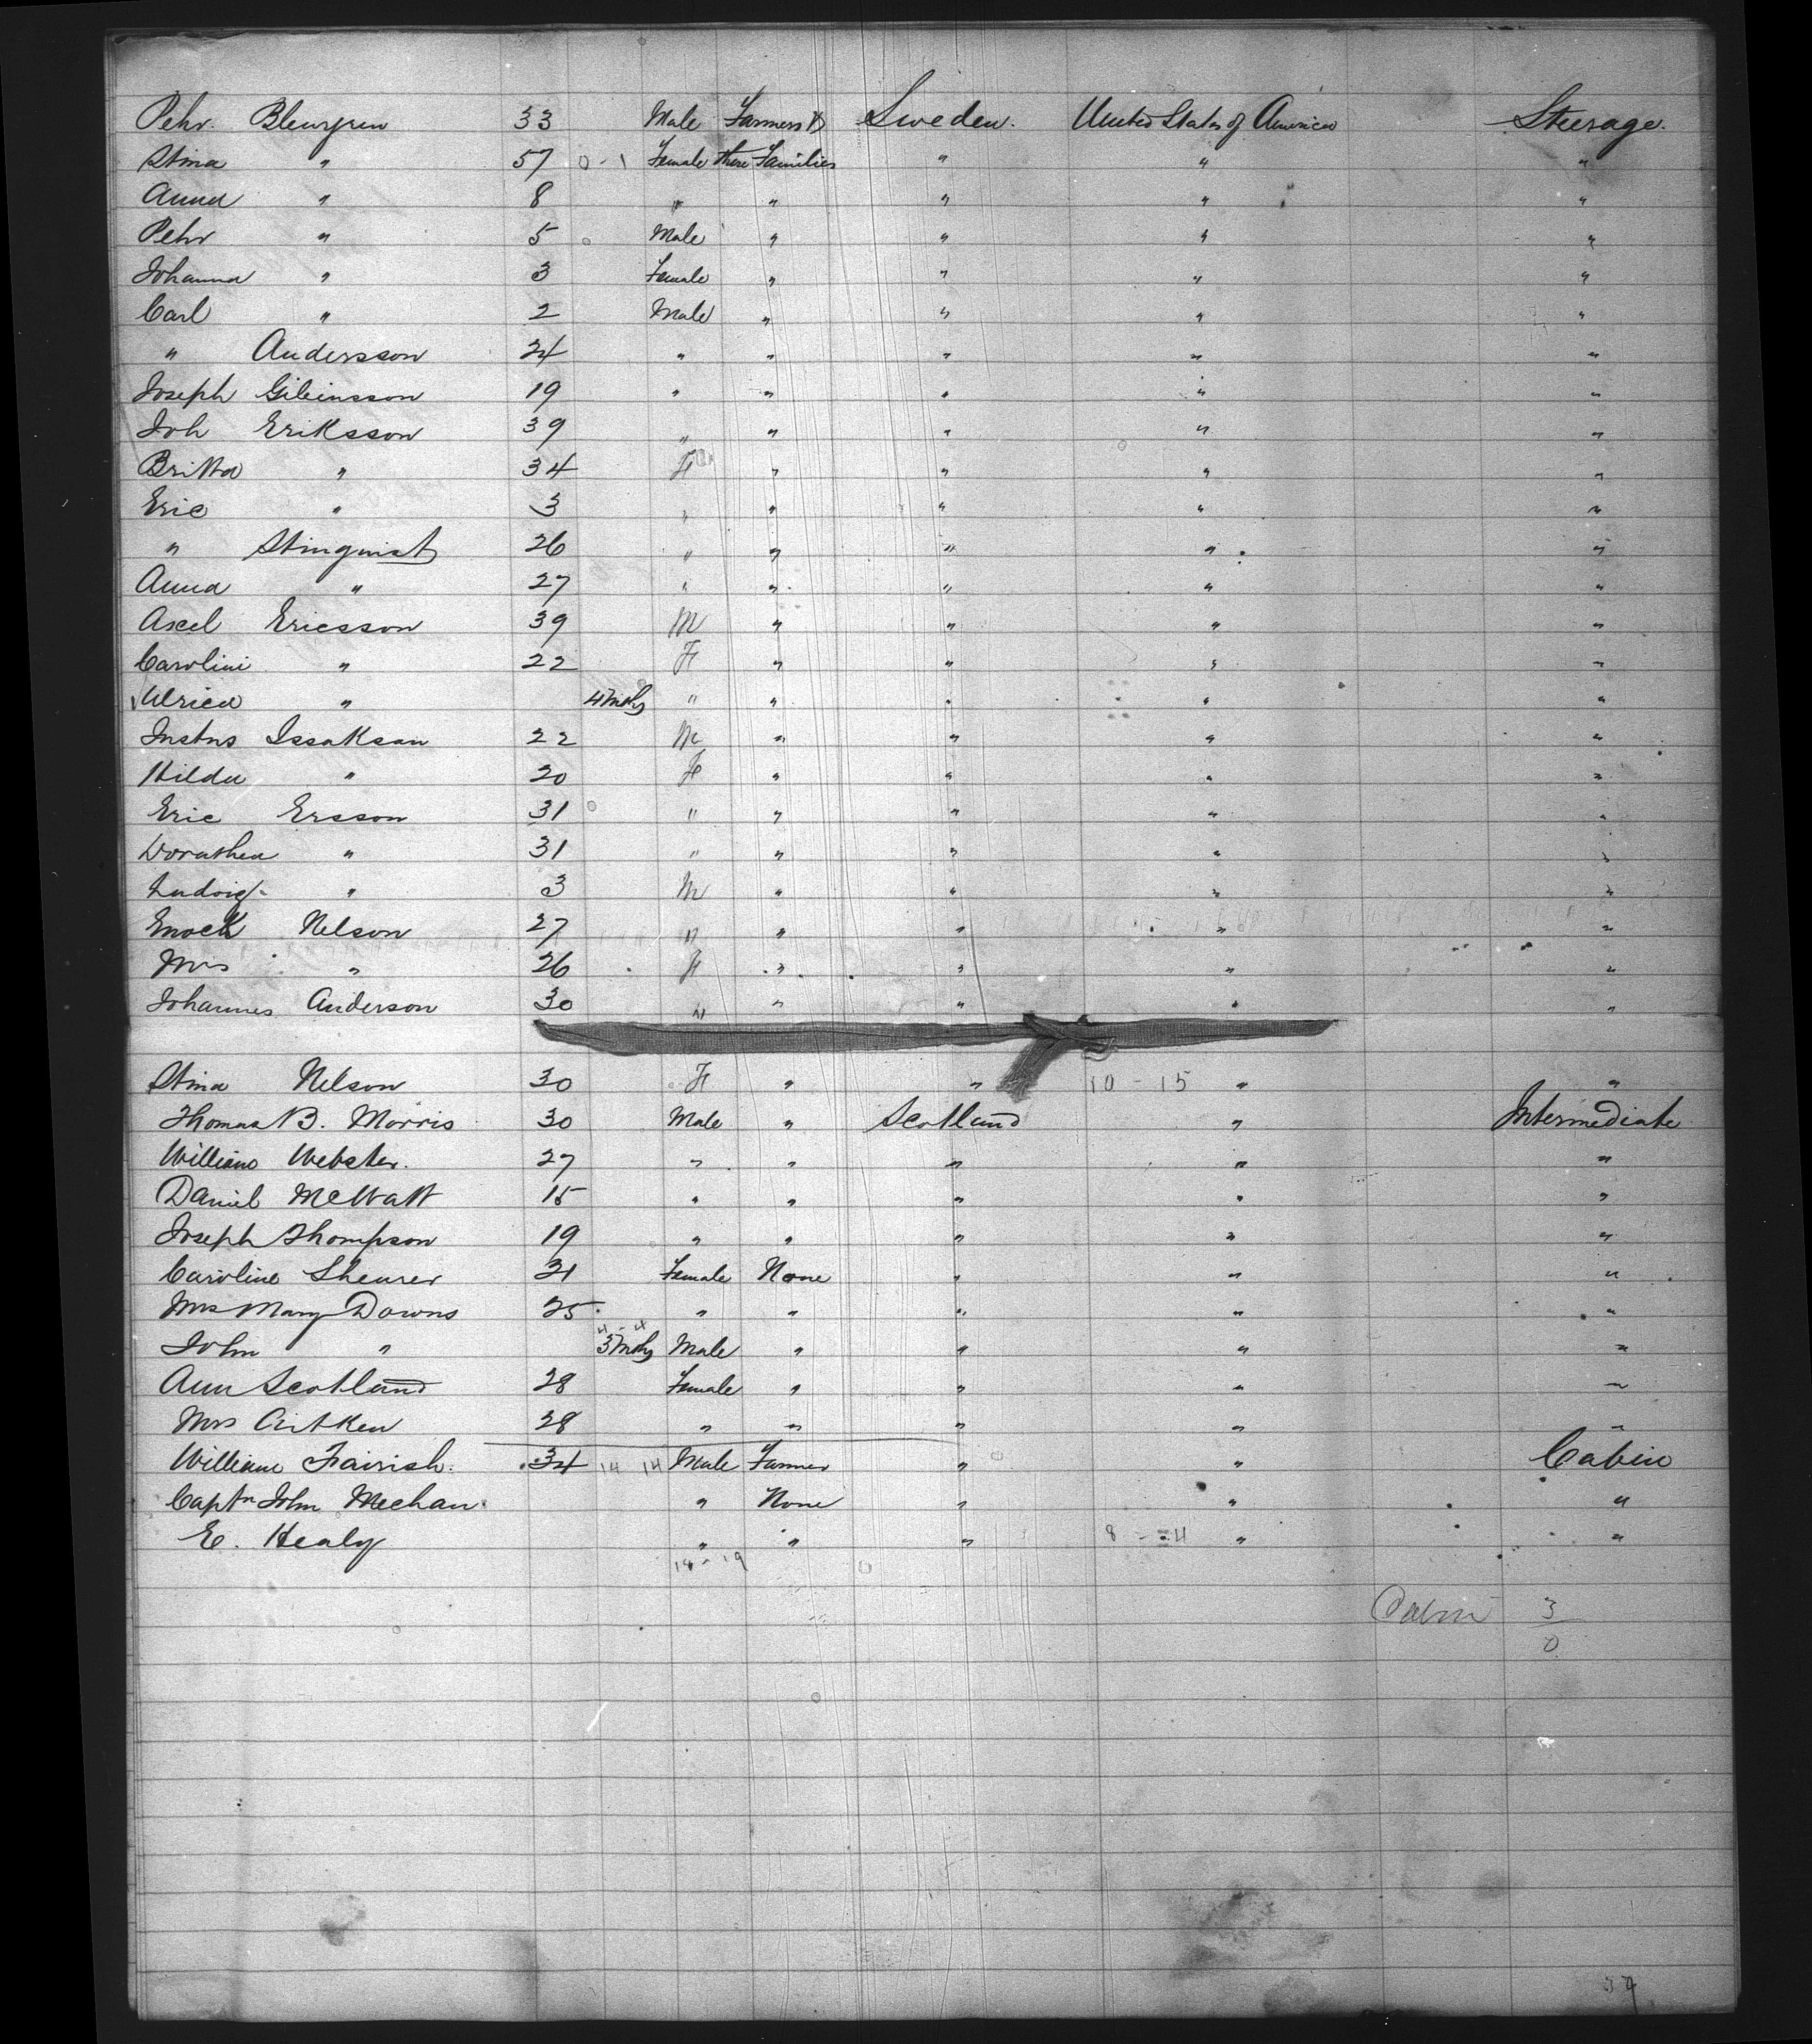 Pehr. Blewgren 33 Male Farmers & Sweden. United States of America Steerage.
Stina " 57 0-1 Female there Families " " "
Anna " 8 " " " " "
Pehr " 5 Male " " " "
Johanna " 3 Female " " " "
Carl " 2 Male " " " "
" Andersson 24 " " " " "
Joseph Gibinsson 19 " " " " "
Joh Eriksson 39 " " " " "
Britta " 34 F " " " "
Eric " 3 " " " " "
" Stinquist 26 " " " " "
Anna " 27 " " " " "
Axel Ericsson 39 M " " " "
Carolini " 22 F " " " "
Ulrica " 4 Mths " " " " "
Justus Issakson 22 M " " " "
Hilda " 20 F " " " "
Eric Ersson 31 " " " " "
Dorathea " 31 " " " " "
Ludvig " 3 M " " " "
Enock Nelson 27 " " " " "
Mrs " 26 F " " " "
Johannes Anderson 30 " " " " "
Stina Nelson 30 F " " 10-15 " "
Thomas B. Morris 30 Male " Scotland " Intermediate
William Webster. 27 " " " " "
Daniel McWatt 15 " " " " "
Joseph Thompson 19 " " " " "
Caroline Shearer 31 Female None " " "
Mrs Mary Downs 25 " " " " "
4-4
John " 3 Mths Male " " " "
Ann Scotland 28 Female " " " "
Mrs Aitken 28 " " " " "
William Fairish. 34 14 14 Male Farmer " " Cabin
Captn John Meehan. " None " " "
E. Healy " " " 8-4 " "
18-19
Cabin 3
0